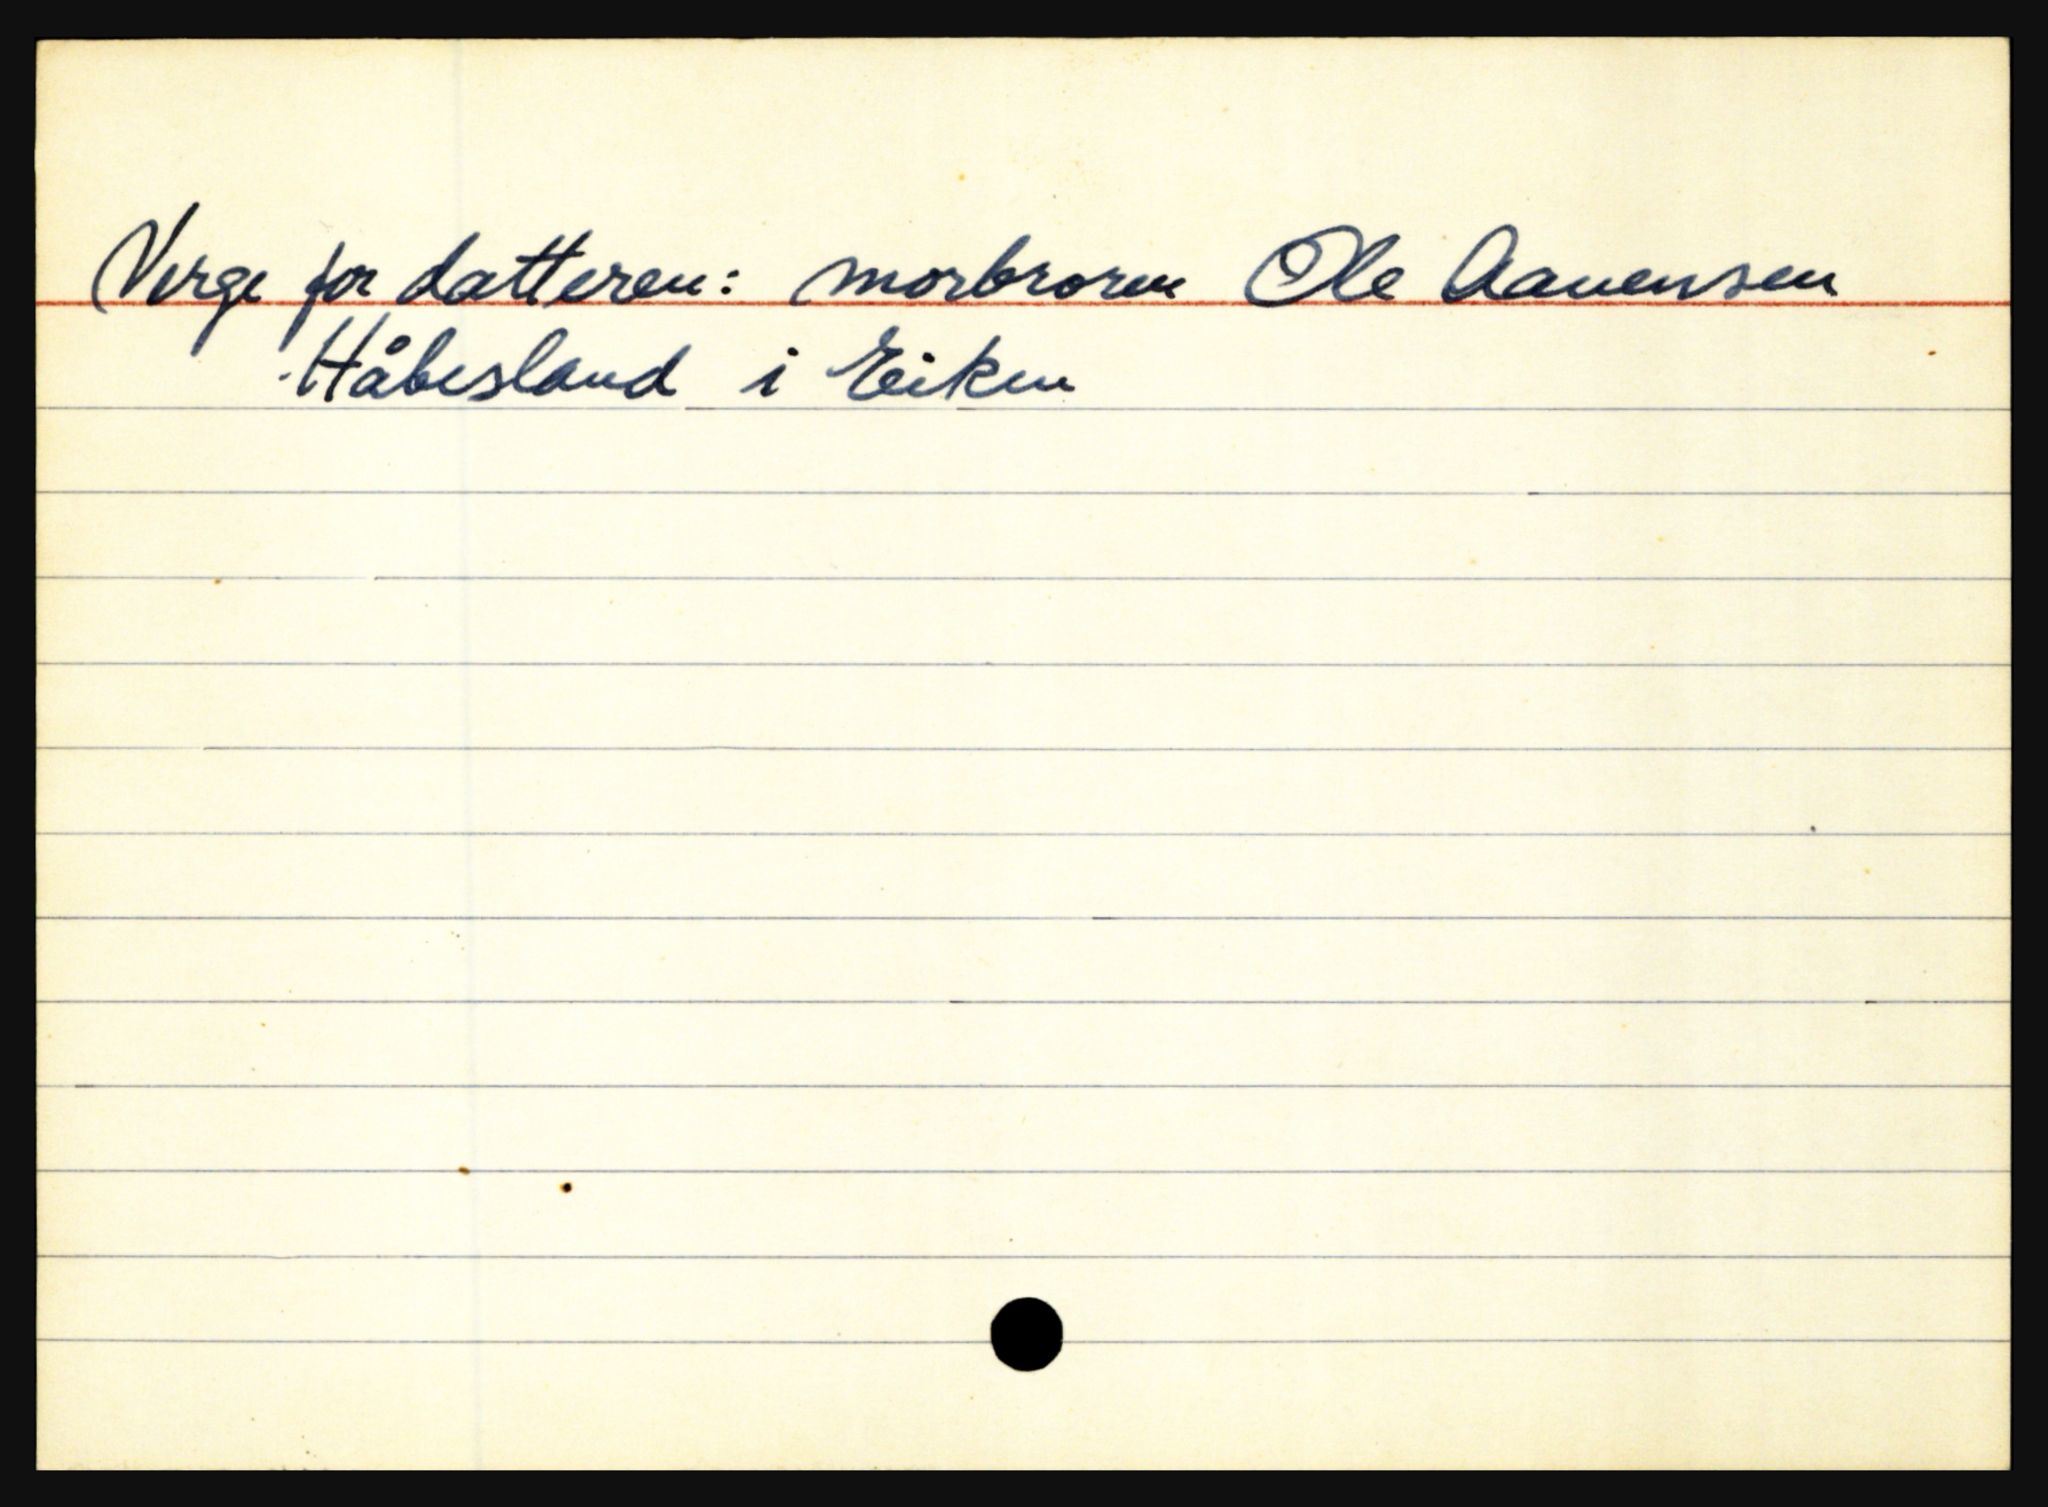 Verge for datteren: morbroren Ole Aanensen
Håbesland i Eiken